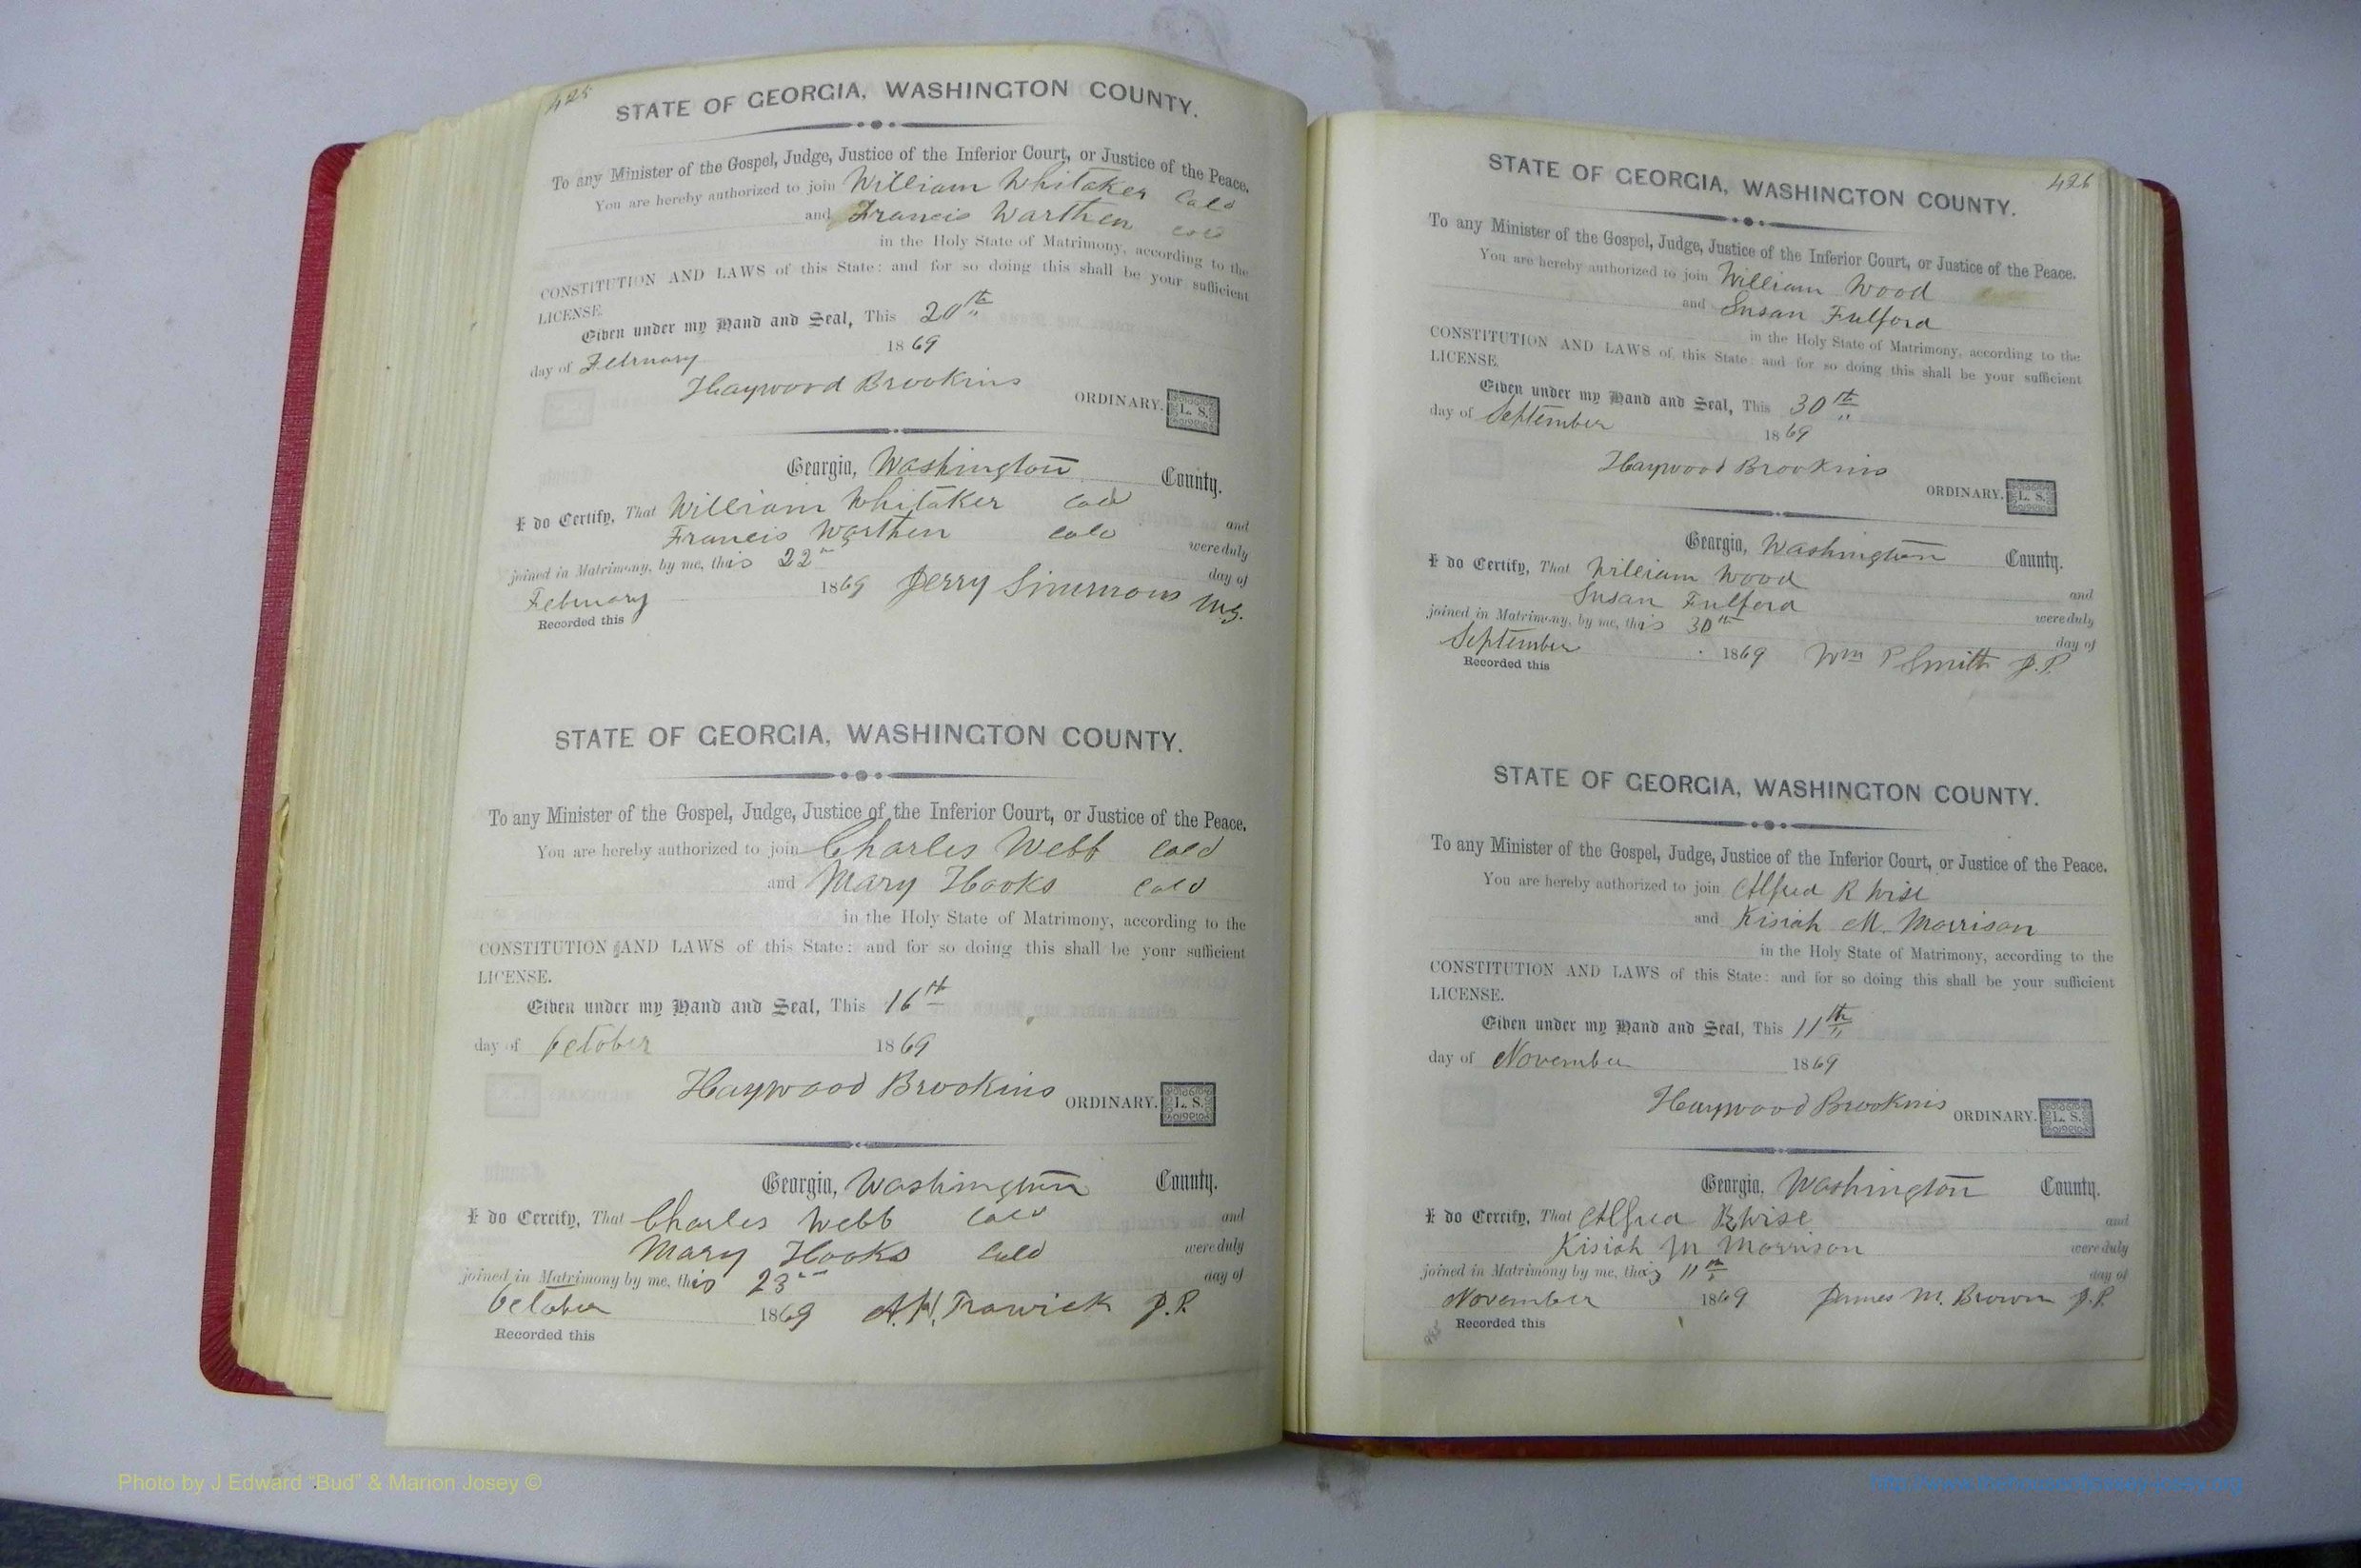 425
STATE OF GEORGIA, WASHINGTON COUNTY.
To any Minister of the Gospel, Judge, Justice of the Inferior Court, or Justice of the Peace,
You are hereby authorized to join William Whitaker Cold
and Francis Warthen cold
in the Holy State of Matrimony, according to the
CONSTITUTION AND LAWS of this State: and for so doing this shall be your sufficient
LICENSE.
Given under my Hand and Seal, This 20th
day of February 1869
Haywood Brookins
ORDINARY. L. S.
Georgia, Washington County.
I do Certify, That William Whitaker Cold and
Francis Warthen cold were duly
joined in Matrimony, by me, this 22" day of
February 1869 Jerry Simmons M.G.
Recorded this
STATE OF GEORGIA, WASHINGTON COUNTY.
To any Minister of the Gospel, Judge, Justice of the Inferior Court, or Justice of the Peace,
You are hereby authorized to join Charles Webb Cold
and Mary Hooks Cold
in the Holy State of Matrimony, according to the
CONSTITUTION AND LAWS of this State: and for so doing this shall be your sufficient
LICENSE.
Given under my Hand and Seal, This 16th
day of October 1869
Haywood Brookins ORDINARY. L. S.
Georgia, Washington County.
I do Cercify, That Charles Webb Cold and
Mary Hooks Cold were duly
joined in Matrimony by me, this 23" day of
October 1869 Trawick J.P.
Recorded this
426
STATE OF GEORGIA, WASHINGTON COUNTY.
To any Minister of the Gospel, Judge, Justice of the Inferior Court, or Justice of the Peace.
You are hereby authorized to join William Wood
and Susan Fulford
in the Holy State of Matrimony, according to the
CONSTITUTION AND LAWS of this State: and for so doing this shall be your sufficient
LICENSE.
Given under my Hand and Seal, This 30th
day of September 1869
Haywood Brookins
ORDINARY. L. S.
Georgia, Washington County.
I do Certify, That William Wood and
Susan Fulford were duly
joined in Matrimony, by me, this 30th day of
September 1869 Wm P Smith J.P.
Recorded this
STATE OF GEORGIA, WASHINGTON COUNTY.
To any Minister of the Gospel, Judge, Justice of the Inferior Court, or Justice of the Peace.
You are hereby authorized to join Alfred R Wise
and Kisiah M. Morrison
in the Holy State of Matrimony, according to the
CONSTITUTION AND LAWS of this State: and for so doing this shall be your sufficient
LICENSE.
Given under my Hand and Seal, This 11th
day of November 1869
Haywood Brookins ORDINARY. L. S.
Georgia, Washington County.
I do Cercify, That Alfred R Wise and
Kisiah M Morrison were duly
joined in Matrimony by me, this 11th day of
November 1869 James M. Brown J.P.
Recorded this
Photo by J Edward "Bud" & Marion Josey ©